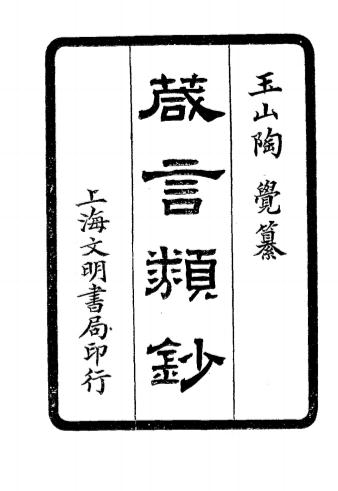 玉山陶覺纂
葴言類鈔
上海文明書局印行